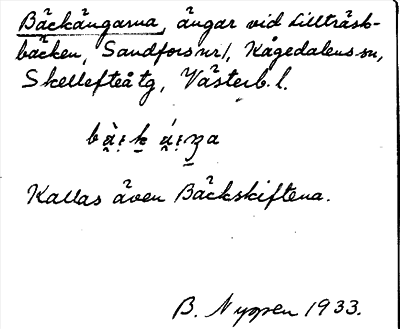 Bäckängarna, ängar vid Lillträsk-
bäcken, Sandfors nr 1, Kågedalens sn,
Skellefteå tg, Västerb. l.
Kallas även Bäckskiftena.
B. Nyppen 1933.